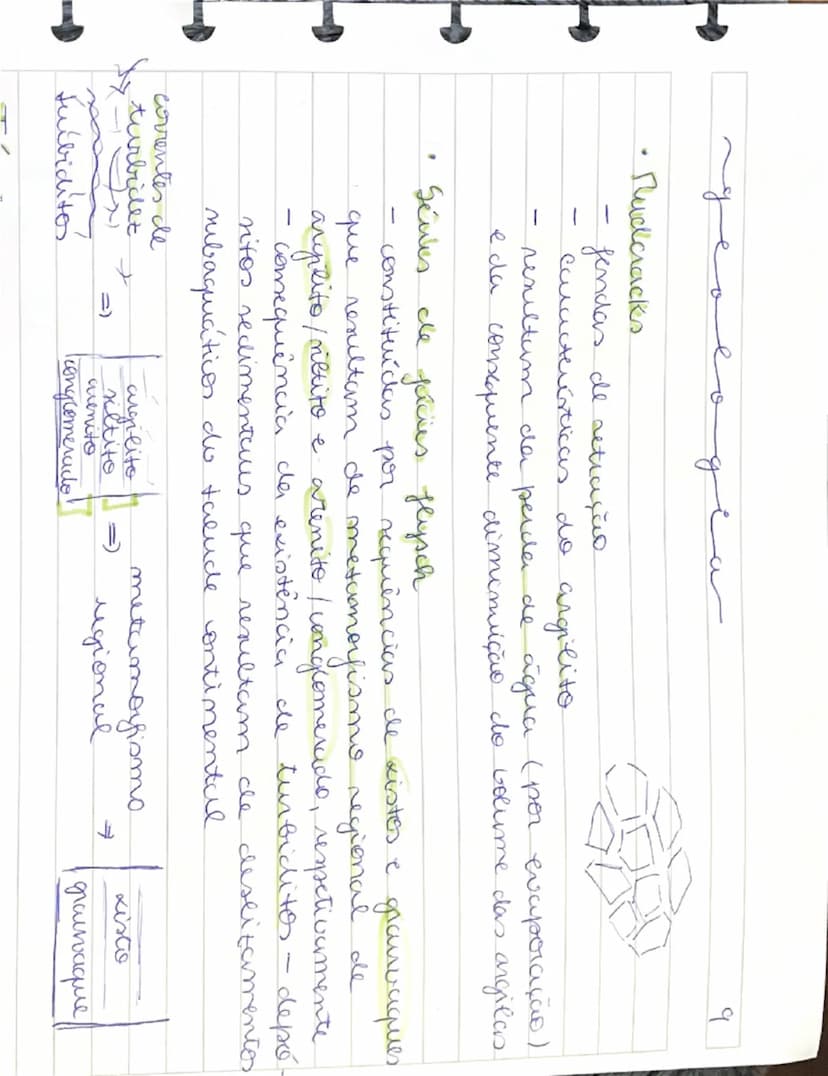 geologia
9
• Mudcracks
- fendas de retração
- características do argilito
- resultam da perda de água (por evaporação)
e da consequente diminuição do volume das argilas
• Séries de fácies flysch
- constituídas por sequências de xistos e grauvaques
que resultam de metamorfismo regional de
argilito/siltito e arenito/conglomerado, respetivamente
- consequência da existência de turbiditos - depó-
sitos sedimentares que resultam de desleitamentos
subaquáticos do talude continental
correntes de
turbidez
turbiditos
⇒
argilito
siltito
arenito
conglomerado
⇒
metamorfismo
regional
⇒
xisto
grauvaque